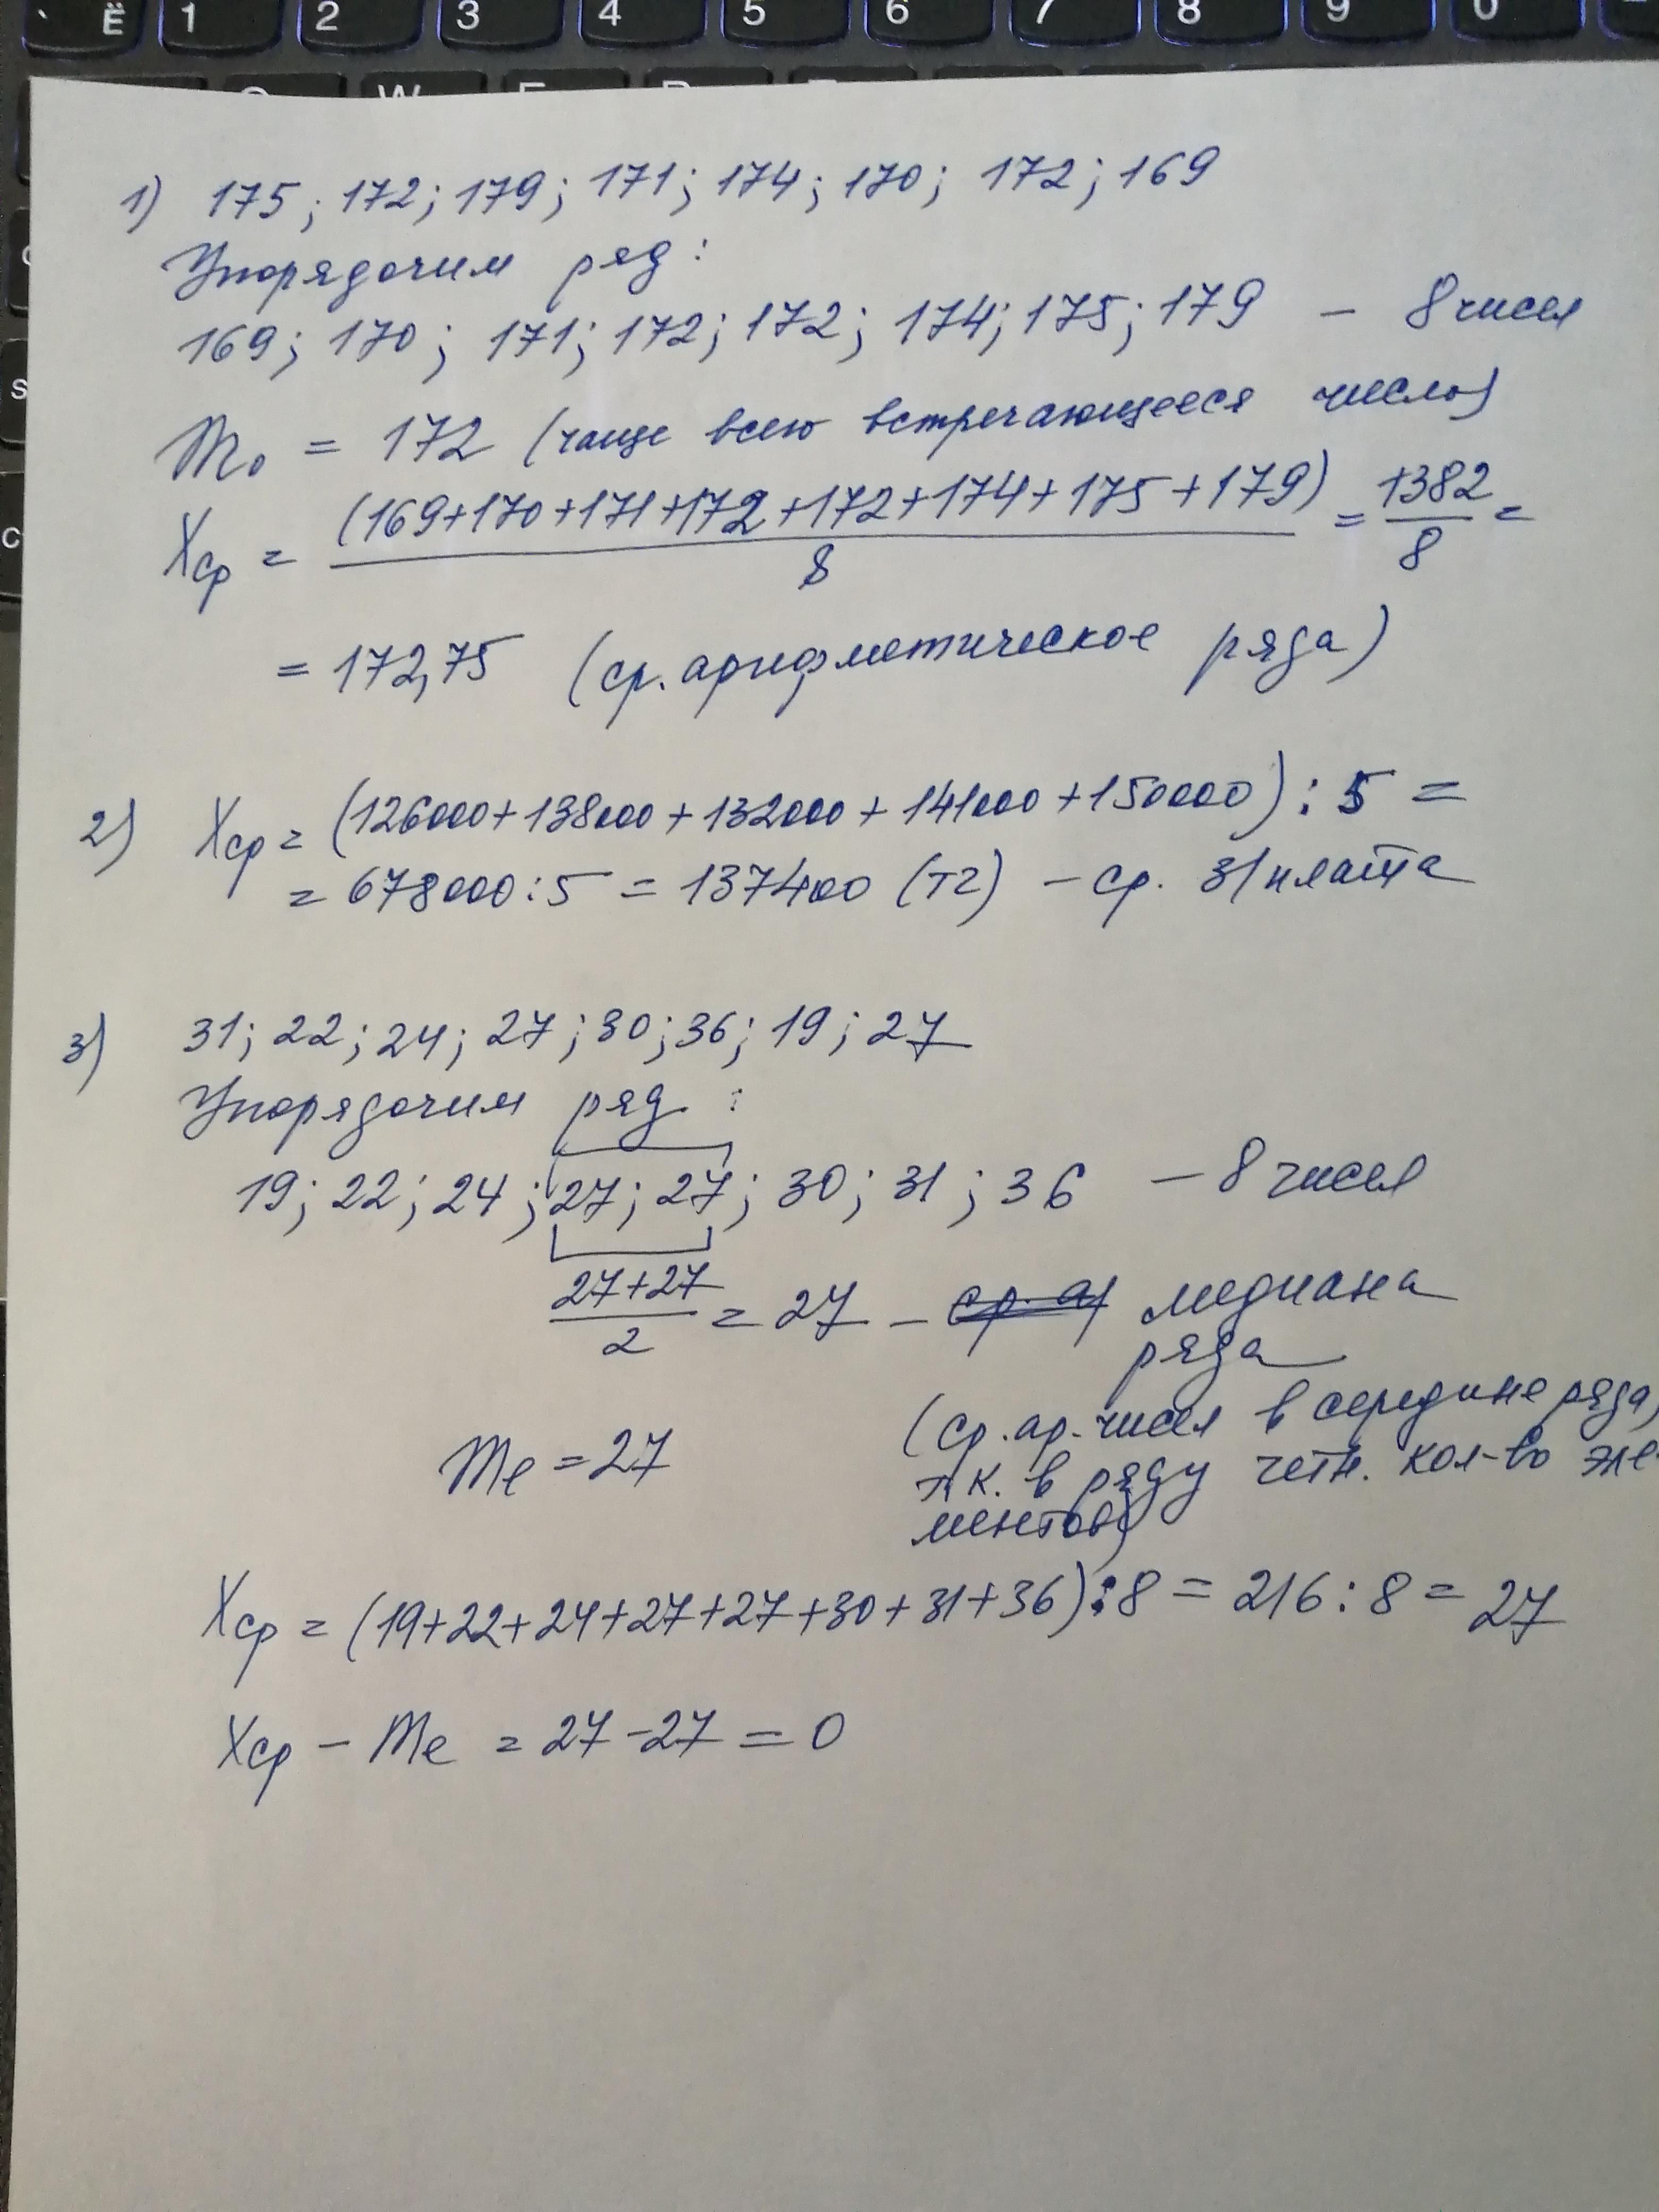 Ё 1 2 3 4 5 6 7 8 9 0
1) 175; 172; 179; 171; 174; 170; 172; 169
Упорядочим ряд:
169; 170; 171; 172; 172; 174; 175; 179 - 8 чисел
Mo = 172 (чаще всего встречающееся число)
Xср = (169+170+171+172+172+174+175+179)/8 = 1382/8 =
= 172,75 (ср. арифметическое ряда)
2) Xср = (126000+138000+132000+141000+150000):5 =
= 678000:5 = 137400 (тг) - ср. з/плата
3) 31; 22; 24; 27; 30; 36; 19; 27
Упорядочим ряд:
19; 22; 24; 27; 27; 30; 31; 36 - 8 чисел
(27+27)/2 = 27 - ср. а медиана
ряда
(ср. ар. чисел в середине ряда,
Me = 27
т.к. в ряду четн. кол-во эле-
ментов)
Xср = (19+22+24+27+27+30+31+36):8 = 216:8 = 27
Xср - Me = 27-27 = 0